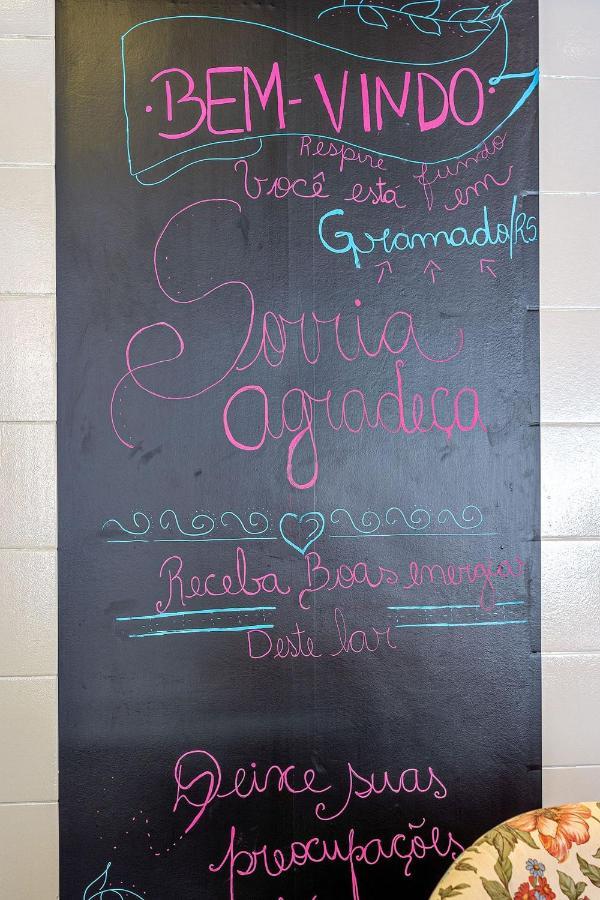 BEM-VINDO
Respire fundo
Você está em
Gramado/RS
Sorria
agradeça
Receba Boas energias
Deste lar
Deixe suas
preocupações